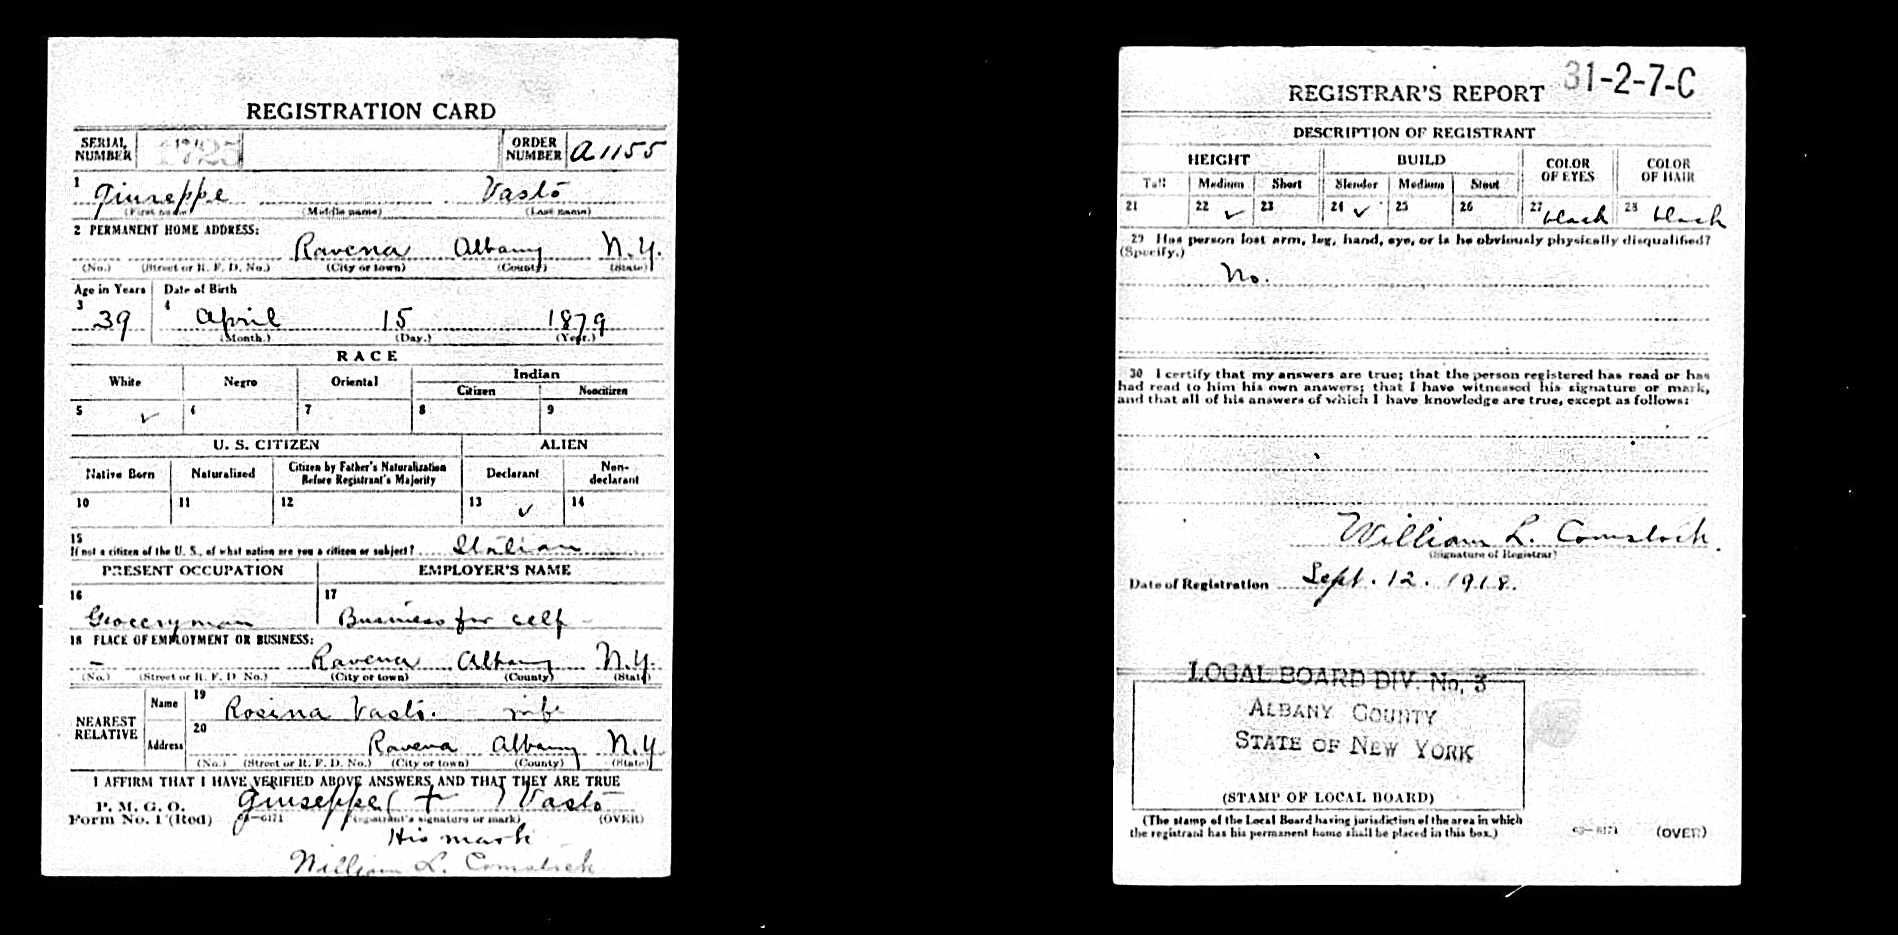 REGISTRATION CARD
SERIAL NUMBER 1725 ORDER NUMBER A1155
1 Giuseppe Vasto
(First name) (Middle name) (Last name)
2 PERMANENT HOME ADDRESS:
Ravena Albany N.Y.
(No.) (Street or R. F. D. No.) (City or town) (County) (State)
Age in Years Date of Birth
3 39 4 April 15 1879
(Month.) (Day.) (Year.)
RACE
White Negro Oriental Indian
Citizen Noncitizen
5 ✓ 6 7 8 9
U. S. CITIZEN ALIEN
Native Born Naturalized Citizen by Father's Naturalization Before Registrant's Majority Declarant Non-declarant
10 11 12 13 ✓ 14
15
If not a citizen of the U. S., of what nation are you a citizen or subject? Italian
PRESENT OCCUPATION EMPLOYER'S NAME
16 Groceryman 17 Business for self -
18 PLACE OF EMPLOYMENT OR BUSINESS:
- Ravena Albany N.Y.
(No.) (Street or R. F. D. No.) (City or town) (County) (State)
NEAREST RELATIVE Name 19 Rosina Vasto. wife
Address 20 Ravena Albany N.Y.
(No.) (Street or R. F. D. No.) (City or town) (County) (State)
I AFFIRM THAT I HAVE VERIFIED ABOVE ANSWERS AND THAT THEY ARE TRUE
P. M. G. O.
Form No. 1 (Red) Giuseppe ( + ) Vasto
(Registrant's signature or mark) (OVER)
His mark
William L. Comstock
REGISTRAR'S REPORT 31-2-7-C
DESCRIPTION OF REGISTRANT
HEIGHT BUILD COLOR OF EYES COLOR OF HAIR
Tall Medium Short Slender Medium Stout
21 22 ✓ 23 24 ✓ 25 26 27 black 28 black
29 Has person lost arm, leg, hand, eye, or is he obviously physically disqualified?
(Specify.)
No.
30 I certify that my answers are true; that the person registered has read or has
had read to him his own answers; that I have witnessed his signature or mark,
and that all of his answers of which I have knowledge are true, except as follows:
William L. Comstock.
(Signature of Registrar)
Date of Registration Sept. 12. 1918.
LOCAL BOARD DIV. No. 3
ALBANY COUNTY
STATE OF NEW YORK
(STAMP OF LOCAL BOARD)
(The stamp of the Local Board having jurisdiction of the area in which
the registrant has his permanent home shall be placed in this box.)
(OVER)